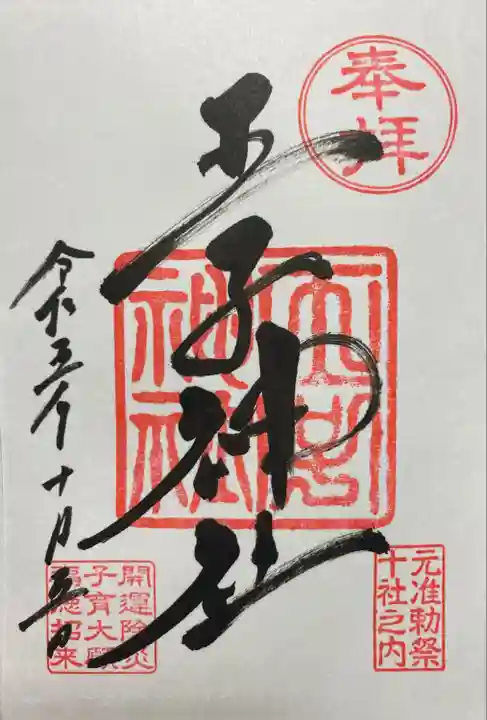 奉拝
王子神社
神社
元准勅祭
十社之内
令和五年十月五日
開運除災
子育大願
福徳招来